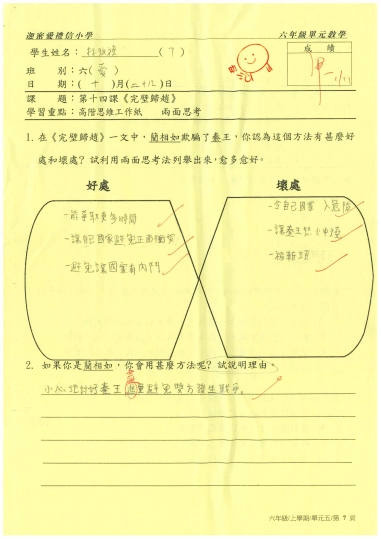 迦密愛禮信小學 六年級單元教學
學生姓名： (7) 成績
班 別：六( 愛 )
日 期：( 十 )月(二十八)日
課 題：第十四課《完璧歸趙》
學習重點：高階思維工作紙 兩面思考
1. 在《完璧歸趙》一文中，藺相如欺騙了秦王，你認為這個方法有甚麼好
處和壞處？試利用兩面思考法列舉出來，愈多愈好。
好處 壞處
-能爭取更多時間
-讓自己國家避免正面衝突
-避免讓國家有內鬥
-令自己國家入危險
-讓秦王怒火中燒
2. 如果你是藺相如，你會用甚麼方法呢？試說明理由。
小心地付好秦王 盡量避免雙方發生戰爭。
六年級/上學期/單元五/第 7 頁